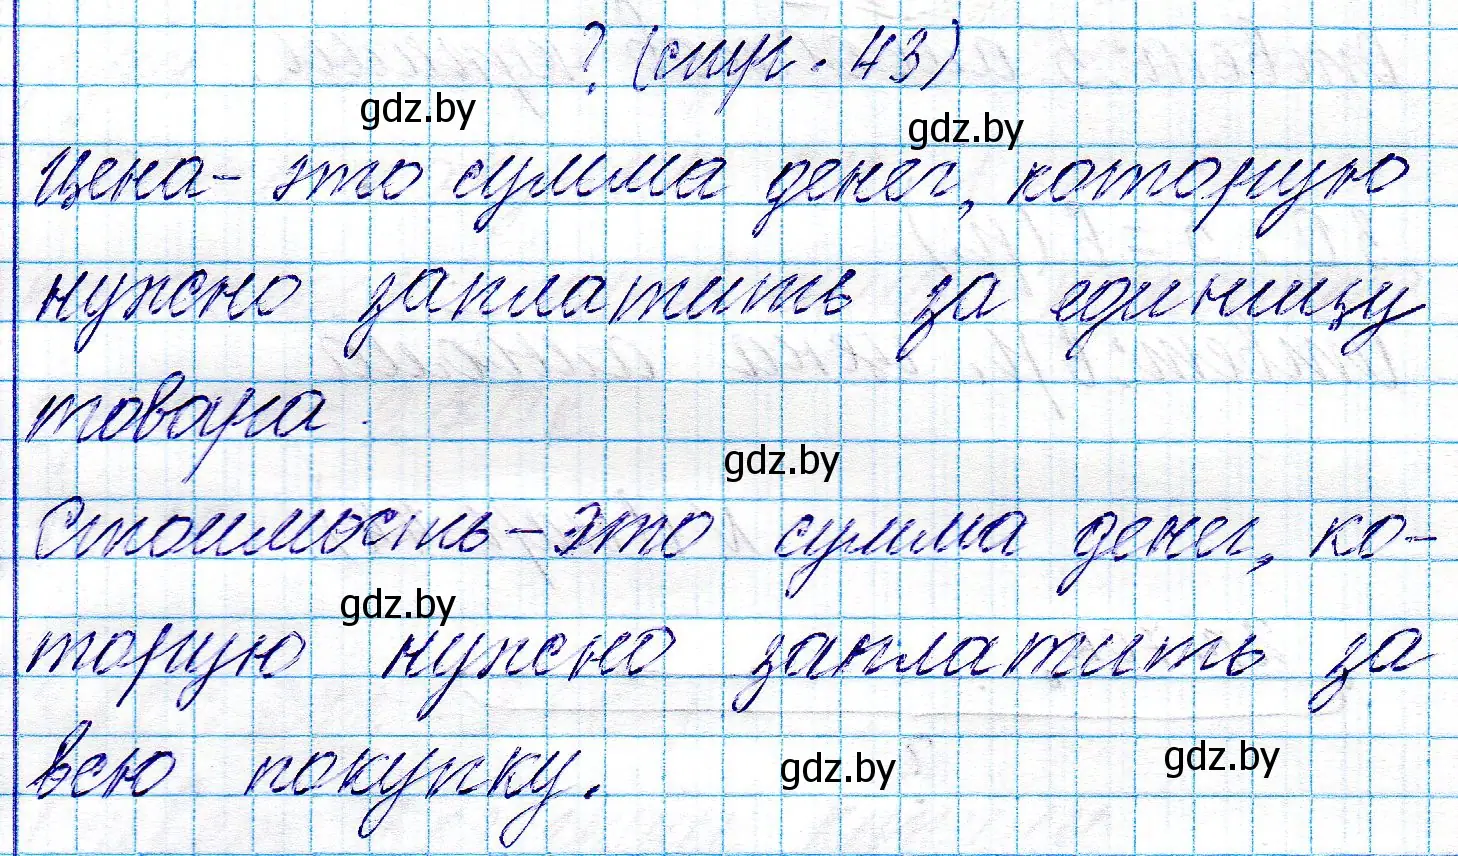 ? (стр. 43)
gdz.by
gdz.by
Цена - это сумма денег, которую
нужно заплатить за единицу
товара.
gdz.by
Стоимость - это сумма денег, ко-
gdz.by
торую нужно заплатить за
всю покупку.
gdz.by
gdz.by